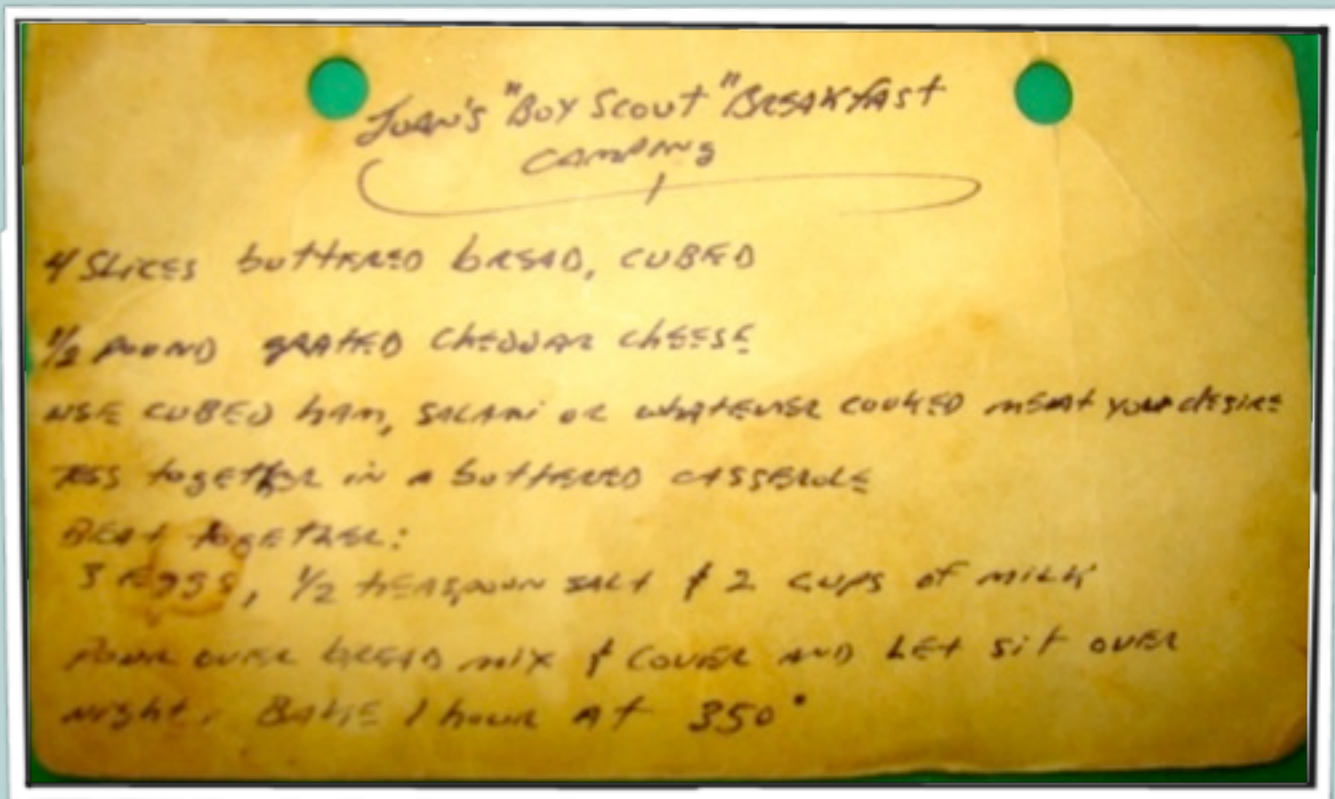 Juan's "Boy Scout" Breakfast
Camping
4 Slices buttered bread, cubed
1/2 pound grated cheddar cheese
use cubed ham, salami or whatever cooked meat you desire
Toss together in a buttered casserole
Beat together:
3 eggs, 1/2 teaspoon salt & 2 cups of milk
Pour over bread mix & cover and let sit over
night. Bake 1 hour at 350°